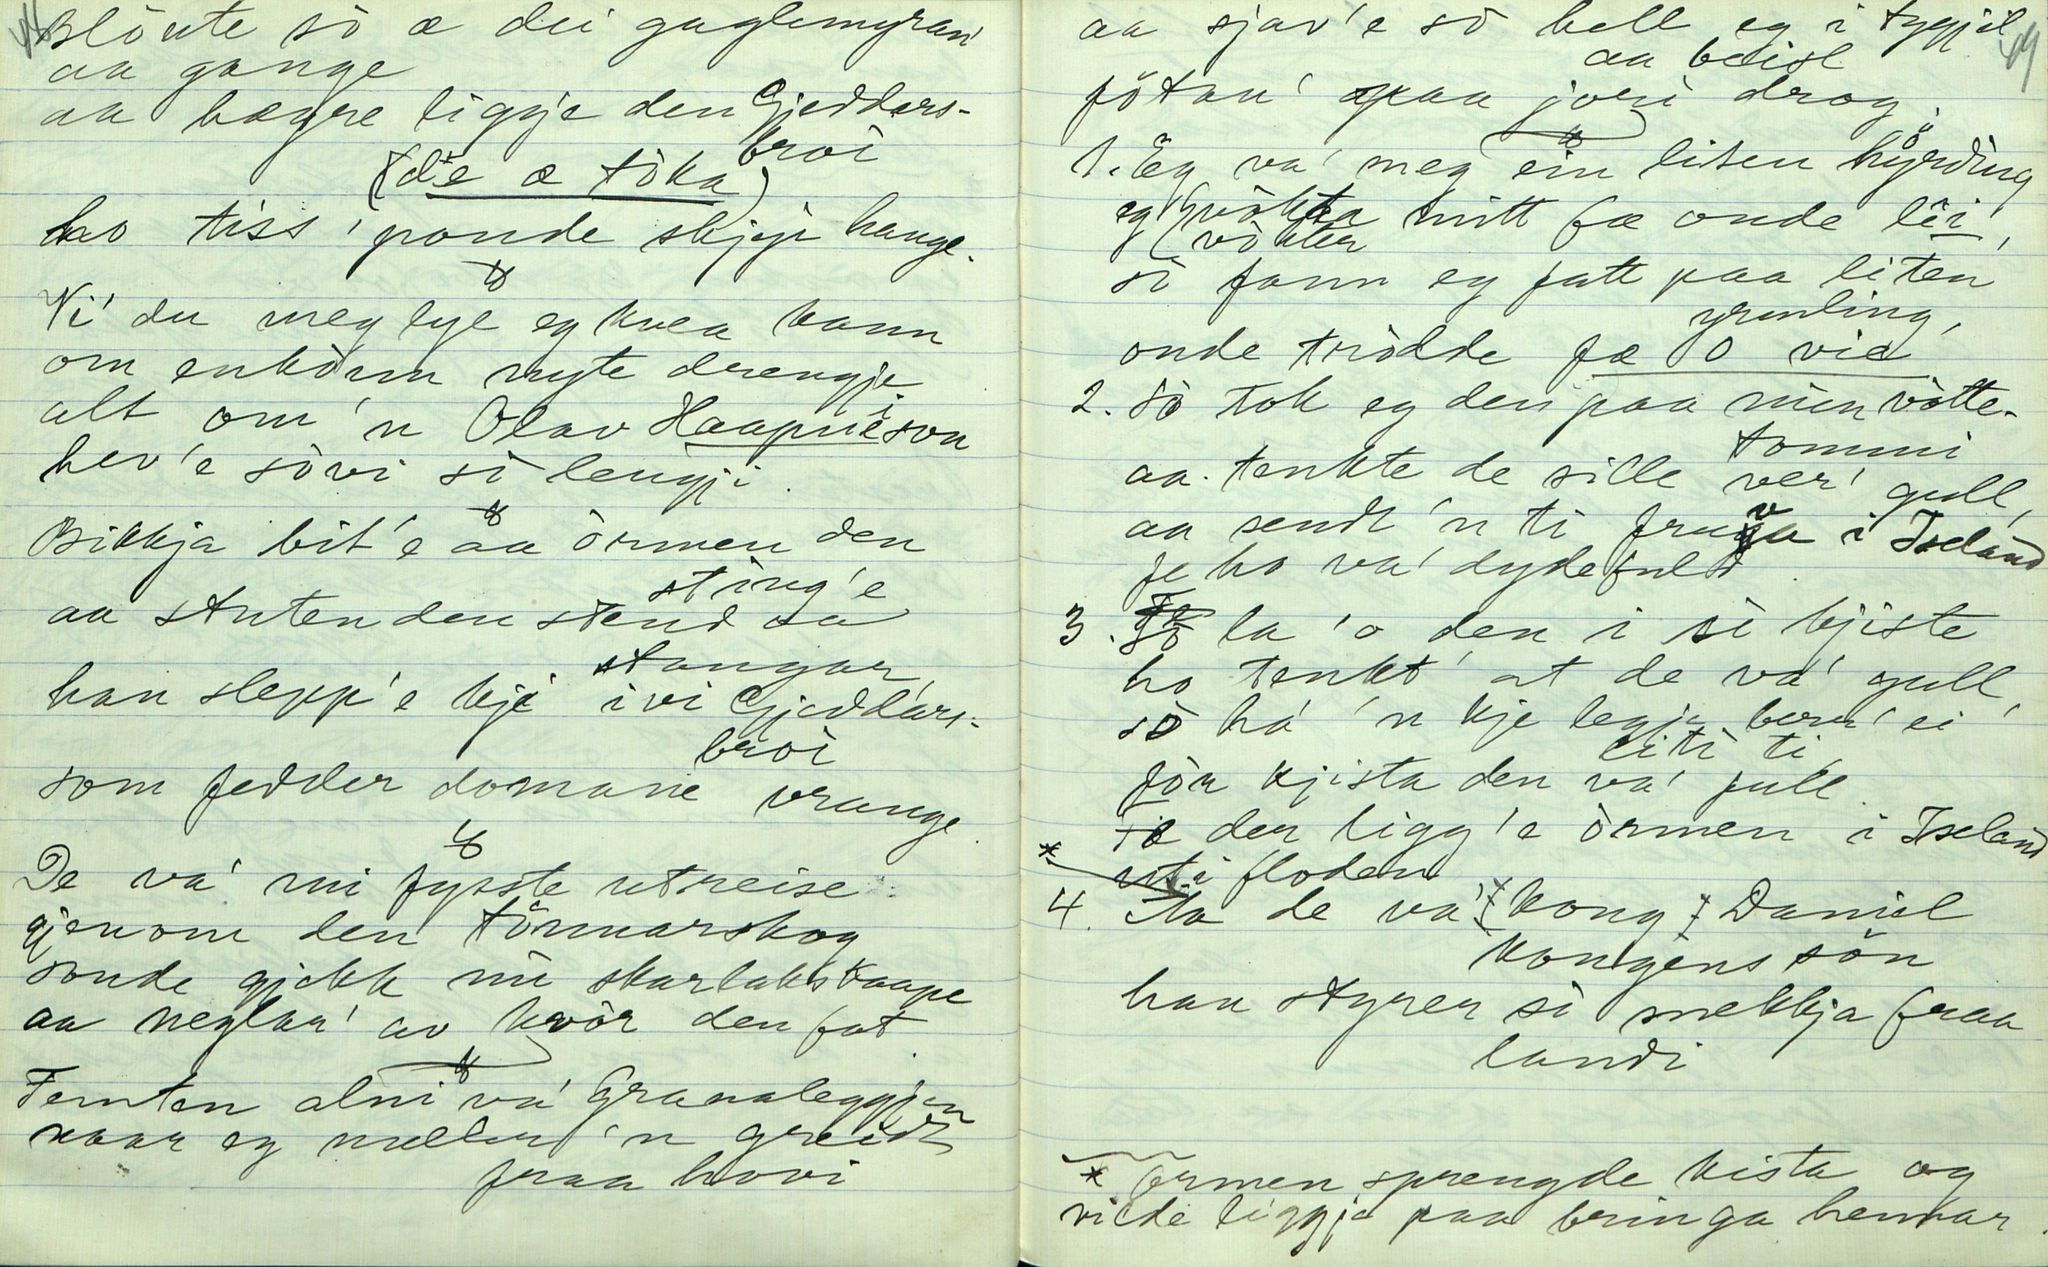 Blöute sò æ dei gaglemyran'
aa gange
aa høgre liggje den Gjeddars-
broi
(de æ tòka)
ho tiss' ponde skjyi hange.
Vi' du meg lye eg kvea kann
om enkònn nyte drengje
alt om 'n Olav Haapneison
hev'e sòvi sì lengji.
Bikkja bit'e aa òrmen den
sting'e
aa stuten den stend aa
stangar
han slepp'e kje ivi Gjeddars-
broi
som fedder domane vrange.
De va' mi fysste utreise
gjenom den tönnarskog
sonde gjekk mi skarlakskaape
aa neglan' av kvòr den fot.
Femten alni va' Granaleggjen
naar eg mæler 'n greidt
fraa hovi
49
aa sjav'e sò hell eg i tygjil
aa beisl
fötan' paa jori drog.
1. Eg va' meg ein liten hyrding
eg vòkta mitt fæ onde lii,
(vòkter
sì fann eg fatt paa liten
yrmling,
onde trödde fæ O via
2. Sò tok eg den paa min vòtte-
tommi
aa tenkte de sille ver' gull,
aa sendt 'n ti fruva i Iseland
fe ho va' dydefuld.
3. Sò la 'o den i sì kjiste
ho tenkt' at de va' gull,
sò há 'n kje legje bern' ei
liti ti,
fòr kjista den va' full.
Fe der ligg'e òrmen i Iseland
* uti floden
4. Aa de va' kong Daniel
kongens sön
han styrer sì snekkja fraa
landi
* Ormen sprengde kista og
vilde liggja paa bringa hennar.